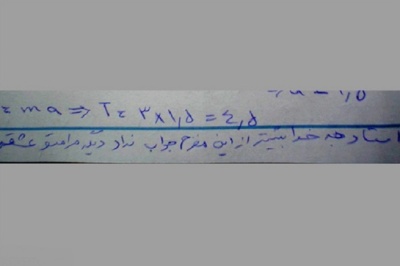 = ma ⇒ T = ۳×۱,۵ = ۴,۵
استاد به خدا بیشتر از این مغزم جواب نداد دیگه مرامتو عشقه